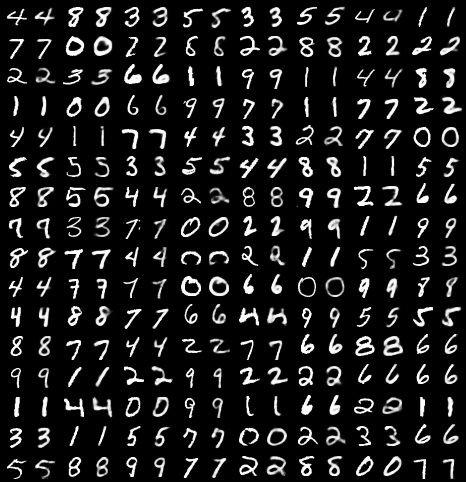 4 4 8 8 3 3 5 5 3 3 5 5 4 4 1 1
7 7 0 0 2 2 8 8 2 2 8 8 2 2 2 2
2 2 3 3 6 6 1 1 9 9 1 1 4 4 8 8
1 1 0 0 6 6 9 9 7 7 1 1 7 7 2 2
4 4 1 1 7 7 4 4 3 3 2 2 7 7 0 0
5 5 5 5 3 3 5 5 4 4 8 8 1 1 5 5
8 8 5 5 4 4 2 2 8 8 9 9 2 2 6 6
7 7 3 3 7 7 0 0 2 2 9 9 1 1 9 9
8 8 7 7 4 4 0 0 2 2 1 1 5 5 3 3
4 4 7 7 7 7 0 0 6 6 0 0 9 9 8 8
4 4 8 8 7 7 6 6 4 4 9 9 5 5 5 5
8 8 7 7 4 4 2 2 7 7 6 6 8 8 6 6
9 9 1 1 2 2 9 9 2 2 2 2 6 6 6 6
1 1 4 4 0 0 9 9 1 1 6 6 2 2 1 1
3 3 1 1 5 5 7 7 0 0 2 2 3 3 6 6
5 5 8 8 9 9 7 7 2 2 8 8 0 0 7 7